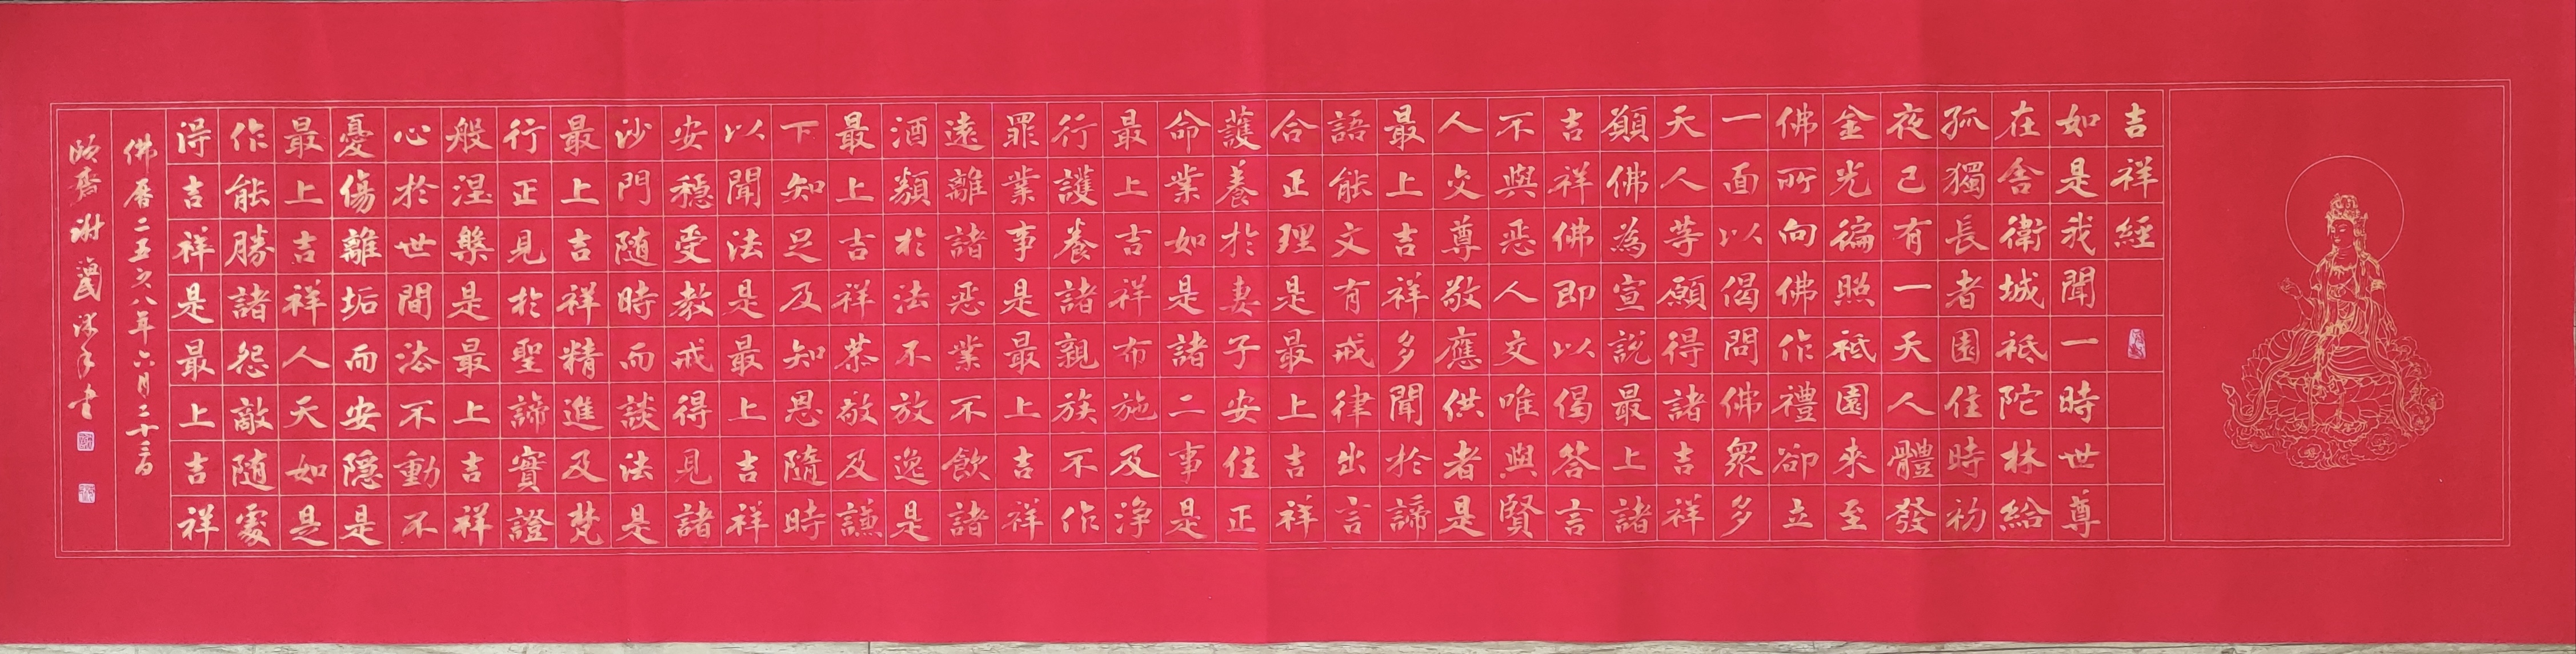 吉祥經
如是我聞一時世尊
在舍衛城祇陀林給
孤獨長者園住時初
夜已有一天人體發
金光徧照祗園來至
佛所向佛作禮卻立
一面以偈問佛眾多
天人等願得諸吉祥
願佛為宣說最上諸
吉祥佛即以偈答言
不與惡人交唯與賢
人交尊敬應供者是
最上吉祥多聞於諦
語能文有戒律出言
合正理是最上吉祥
護養於妻子安住正
命業如是諸二事是
最上吉祥布施及淨
行護養諸親族不作
罪業事是最上吉祥
遠離諸惡業不飲諸
酒類於法不放逸是
最上吉祥恭敬及謙
下知足及知恩隨時
以聞法是最上吉祥
安穩受教戒得見諸
沙門随時而談法是
最上吉祥精進及梵
行正見於聖諦實證
般涅槃是最上吉祥
心於世間法不動不
憂傷離垢而安隱是
最上吉祥人天如是
作能勝諸怨敵随處
得吉祥是最上吉祥
佛曆二五六八年六月二十三日
頤齋謝 沐手書